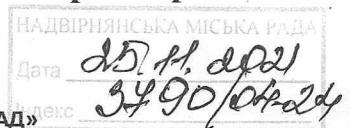 НАДВІРНЯНСЬКА МІСЬКА РАДА
Дата 25.11.2021
Індекс 3790/04-24
АД»